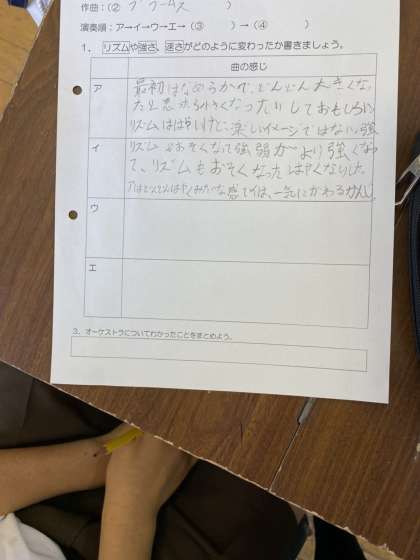 作曲:(② ブラームス )
演奏順:ア→イ→ウ→エ→(③ )→(④ )
1. リズムや強さ、速さがどのように変わったか書きましょう。
曲の感じ
ア
最初はなめらかで、どんどん大きくなっ
たと思ったら小さくなったりしておもしろい。
リズムははやいけど、楽しいイメージではない。強
イ
リズムもおそくなって強弱がより強くなっ
て、リズムもおそくなったりはやくなりした。
アはどんどんはやくみたいな感でイは、一気にかわるかんじ。
ウ
エ
3. オーケストラについてわかったことをまとめよう。